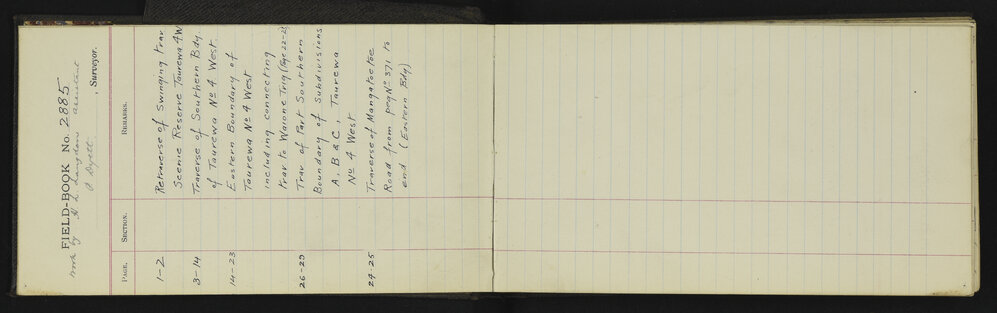 FIELD-BOOK No. 2885
Work by H L Langdon assistant
A Dyett , Surveyor.
PAGE. SECTION. REMARKS.
1-2 Retraverse of Swinging trav
Scenic Reserve Taurewa 4W
3-14 Traverse of Southern Bdy
of Taurewa No 4 West.
14-23 Eastern Boundary of
Taurewa No 4 West
including connecting
trav to Waione Trig (Page 22-23)
26-29 Trav of Part Southern
Boundary of Subdivisions
A, B & C, Taurewa
No 4 West
24-25 Traverse of Mangatoetoe
Road from peg No 371 to
end (Eastern Bdy)